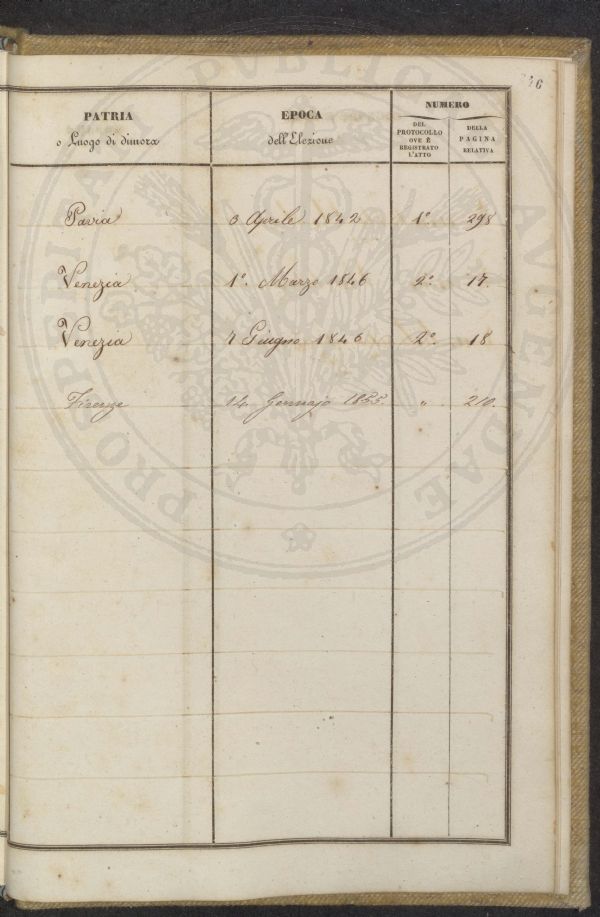 PROSPERITATI PUBLICAE AVGENDAE
PATRIA
o Luogo di dimora
EPOCA
dell'Elezione
NUMERO
DEL PROTOCOLLO OVE È REGISTRATO L'ATTO
DELLA PAGINA RELATIVA
Pavia 3 Aprile 1842 1º. 298
Venezia 1º. Marzo 1846 2º. 17.
Venezia 7 Giugno 1846 2º. 18
Firenze 14 Gennajo 1855. " 210.